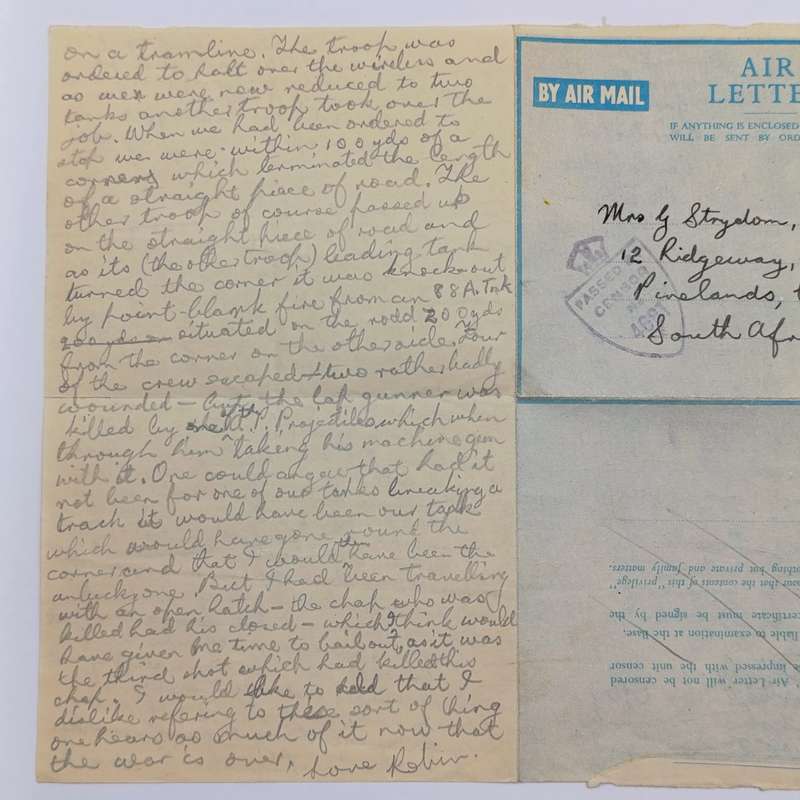 on a tramline. The troop was
ordered to halt over the wireless and
as we were now reduced to two
tanks another troop took over the
job. When we had been ordered to
stop we were within 100 yds of a
corner which terminated the length
of a straight piece of road. The
other troop of course passed up
on the straight piece of road and
as its (the other troop) leading tank
turned the corner it was knock-out
by point-blank fire from an 88 A. Tnk
situated on the rodd 200 yds
from the corner on the other side. Four
of the crew escaped – two rather badly
wounded – but the lap gunner was
killed by one of the A.P. Projectiles which when
through him taking his machine gun
with it. One could argew that had it
not been for one of our tanks breaking a
track it would have been our tank
which would have gone round the
corner and that I would then have been the
unlucky one. But I had been travelling
with an open hatch – the chap who was
killed had his closed – which I think would
have given me time to bail out, as it was
the third shot which had killed this
chap. I would like to add that I
dislike refering to these sort of thing
one hears so much of it now that
the war is over. Love Robin.
BY AIR MAIL
AIR
LETTE
IF ANYTHING IS ENCLOSED
WILL BE SENT BY ORD
Mrs G Strydom,
12 Ridgeway,
Pinelands,
South Afr
PASSED
CENSOR
Air Letter' will not be censored
be impressed with the unit censor
liable to examination at the Base.
certificate must be signed by the
our that the contents of this "privilege"
nothing but private and family matters.